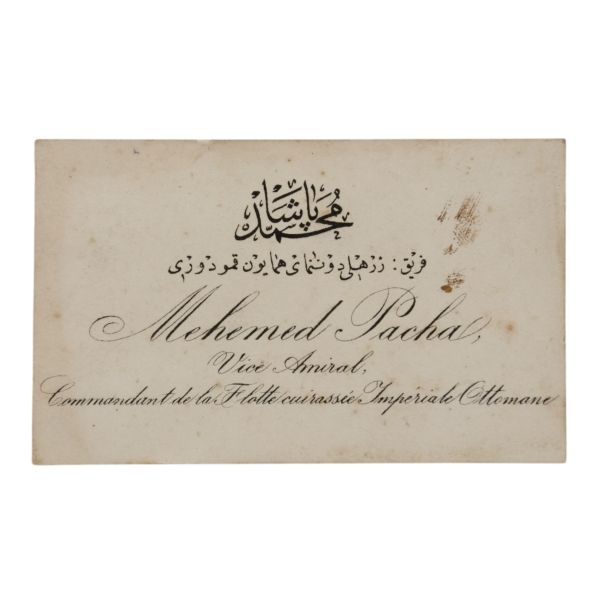 محمد پاشا
فريق : زرهلى دونماى همايون قمودورى
Mehemed Pacha,
Vice Amiral,
Commandant de la Flotte cuirassée Impériale Ottomane